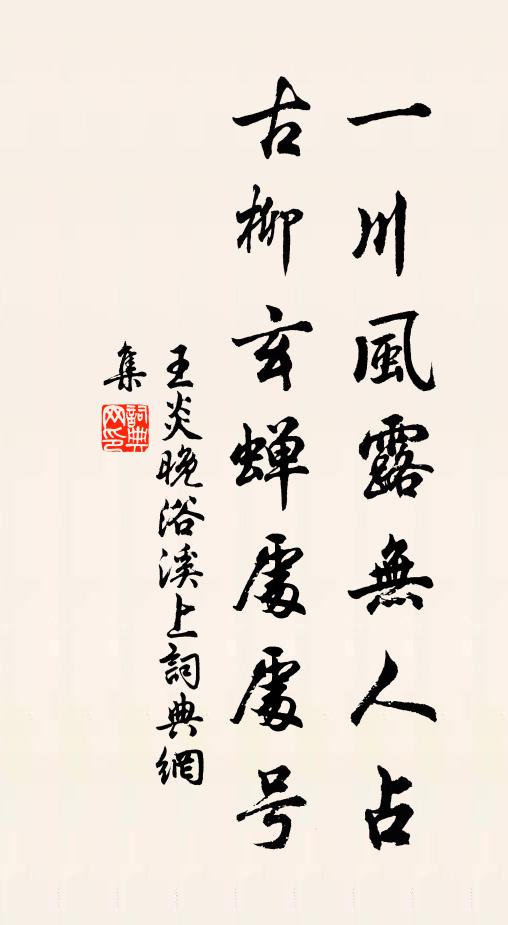 一川風露無人占
古柳玄蝉處處号
王炎晚浴溪上詞典網
集
詞典
网印